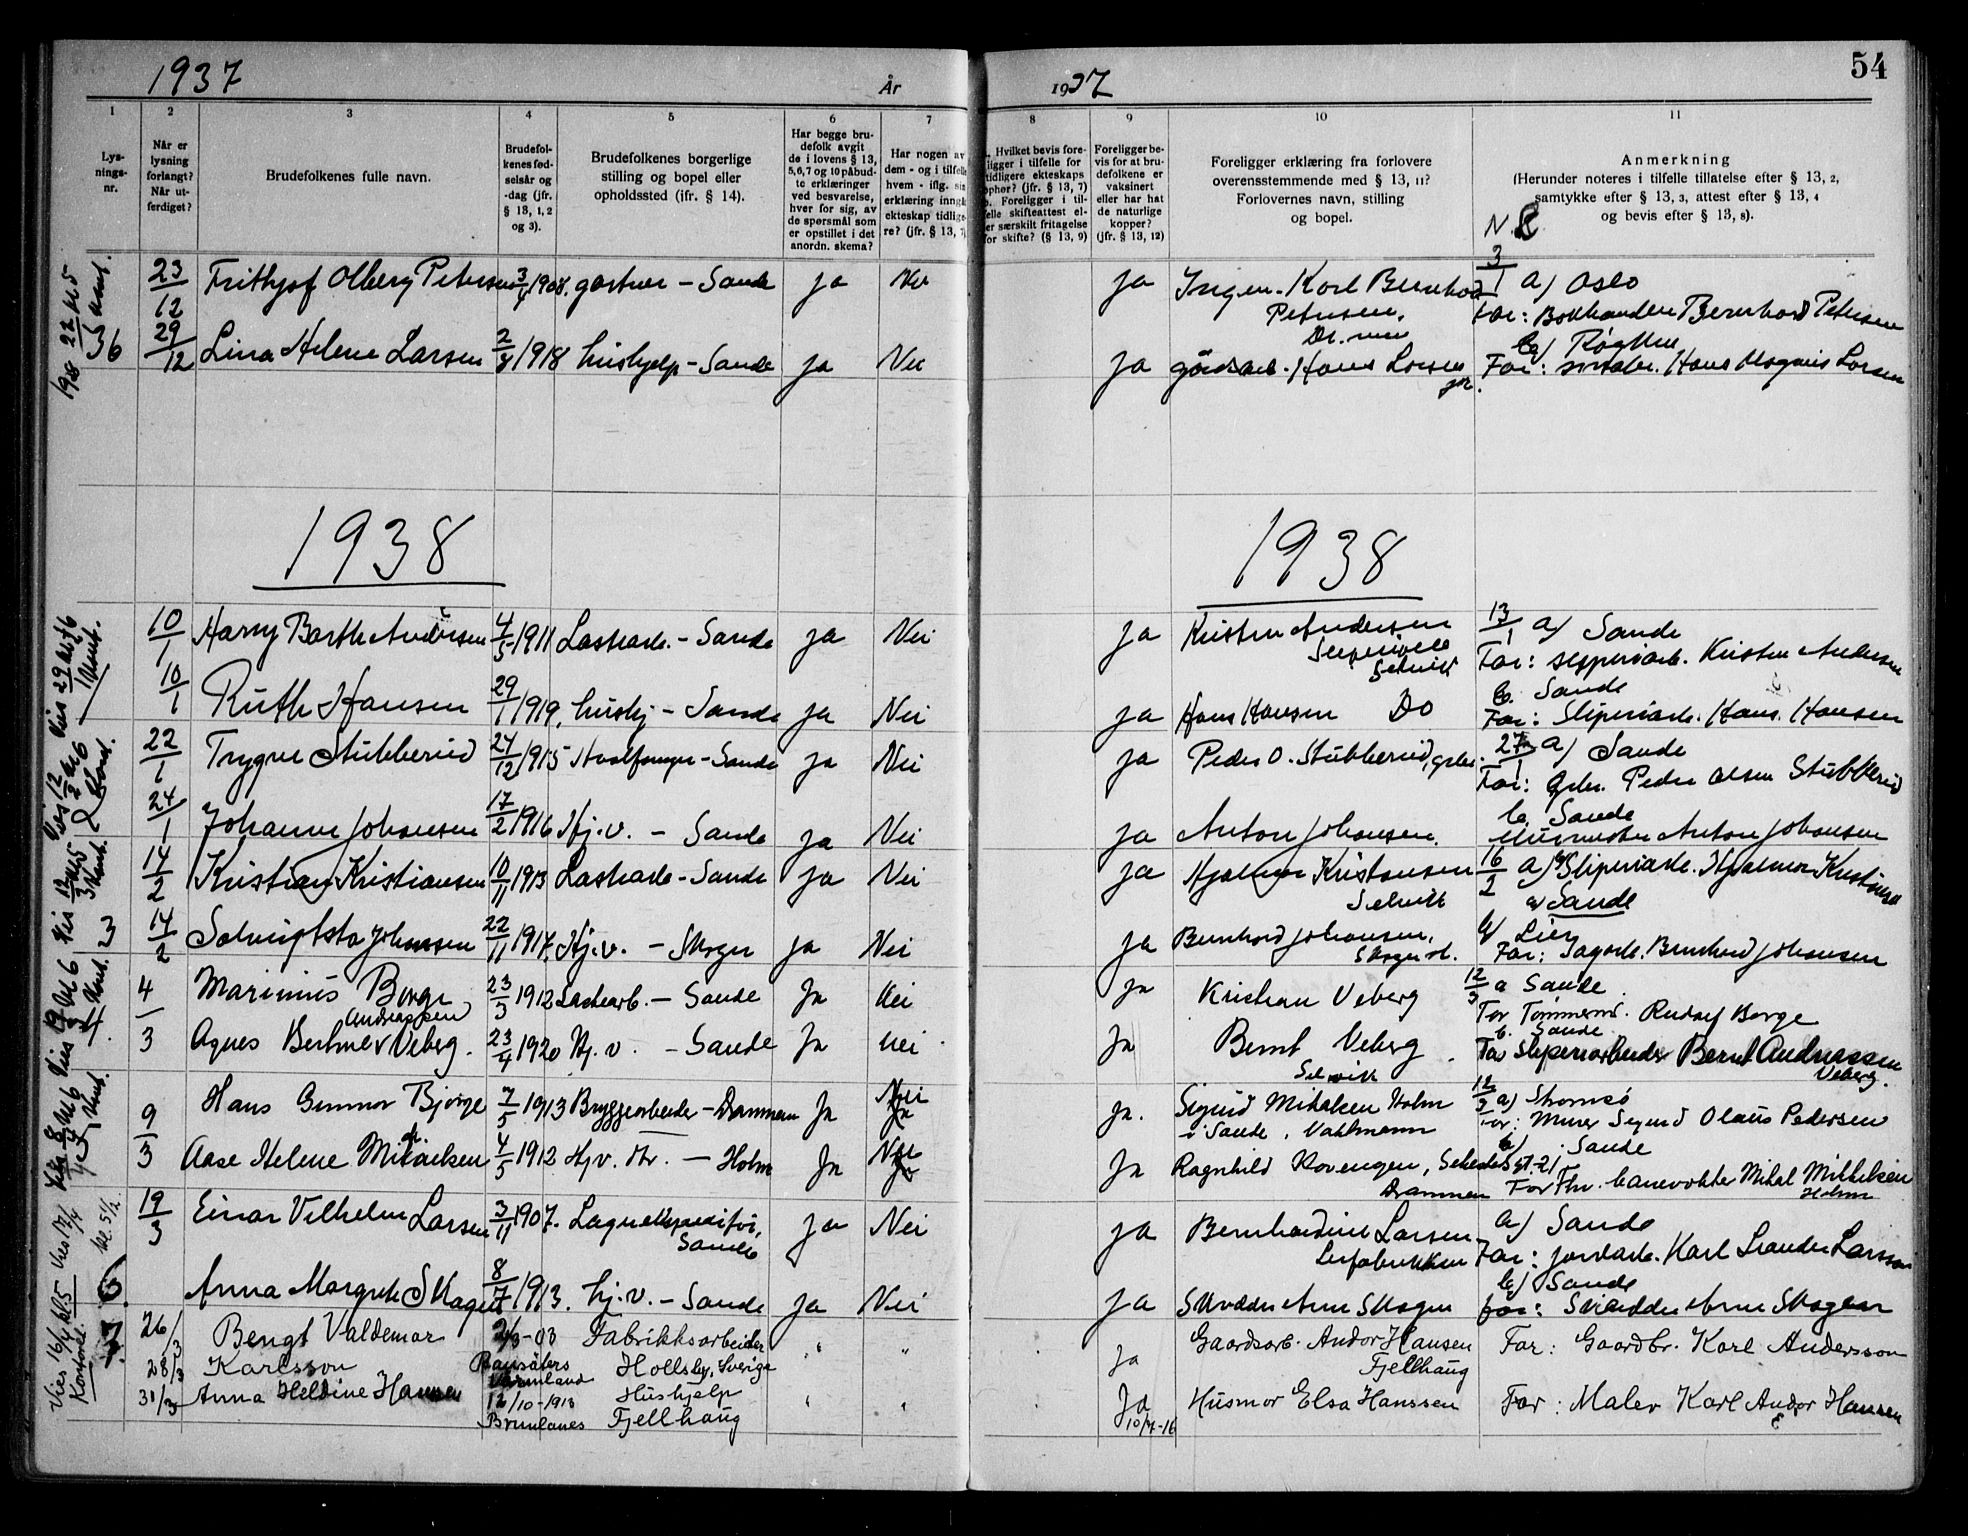 1937 År
1937 54
1 2 3 4 5 6 7
8 9 10 11
Lys-
nings-
nr.
Når er
lysning
forlangt?
Når ut-
ferdiget?
Brudefolkenes fulle navn.
Brudefol-
kenes fød-
selsår og
-dag (jfr.
§ 13, 1, 2
og 3).
Brudefolkenes borgerlige
stilling og bopel eller
opholdssted (jfr. § 14).
Har begge bru-
defolk avgit
de i lovens § 13,
5, 6, 7 og 10 påbud-
te erklæringer
ved besvarelse,
hver for sig, av
de spørsmål som
er opstillet i det
anordn. skema?
Har nogen av
dem - og i tilfelle
hvem - iflg. sin
erklæring inngå
ekteskap tidlige-
re? (jfr. § 13, 7)
Hvilket bevis fore-
ligger i tilfelle for
tidligere ekteskaps
ophør? (jfr. § 13, 7)
Foreligger i til-
felle skifteattest el-
er særskilt fritagelse
for skifte? (§ 13, 9)
Foreligger be-
vis for at bru-
defolkene er
vaksinert
eller har hat
de naturlige
kopper?
(jfr. § 13, 12)
Foreligger erklæring fra forlovere
overensstemmende med § 13, 11?
Forlovernes navn, stilling
og bopel.
Anmerkning
(Herunder noteres i tilfelle tillatelse efter § 13, 2,
samtykke efter § 13, 3, attest efter § 13, 4
og bevis efter § 13, 8).
23/12 Frithjof Olberg Petersen 3/4 1908. gartner - Sande ja Nei
ja Ingen. Karl Bernhard 3/1 a) Oslo
Petersen,
Dr.men
Far: Bokhandler Bernhard Petersen
36 29/12 Lina Helene Larsen 2/8 1918 hushjelp - Sande ja Nei
b) Røyken
ja gårdarb. Hans Larsen jr. Far: Hans Magnus Larsen
1938 1938
10/1 Harry Barth Andersen 4/5 1911 Lastearb. - Sande ja Nei
ja Kristen Andersen 13/1 a) Sande
Selvik
Far: sliperiarb. Kristen Andersen
10/1 Ruth Hansen 29/1 1919, hushj - Sande ja Nei
b. Sande
ja Hans Hansen Do Far: Sliperiarb. Hans Hansen
22/1 Trygve Stubberud 24/12 1915 Hvalfanger - Sande ja Nei
ja Peder O. Stubberud, grbr. 27/1 a) Sande
Far: Grbr. Peder Olsen Stubberud
24/1 Johanne Johansen 17/2 1916 Hj.v. - Sande ja Nei
b, Sande
ja Anton Johansen. Murmester Anton Johansen
14/2 Kristian Kristiansen 10/11 1913 Lastearb - Sande ja Nei
ja Hjalmar Kristiansen 16/2 a) Sliperiarb. Hjalmar Kristiansen
Selvik
a) Sande
3 14/2 Johansen 22/11 1917. Hj.v. - Skoger ja Nei
b/ Lier
ja Bernhard Johansen, Far: Sagarb. Bernhard Johansen
4/3 Marinius Borge 23/5 1912 Lastearb. - Sande Ja Nei
Andreassen
ja Kristian Veberg 12/3 a Sande
Far Tømmerm. Rudolf Borge
Agnes Veberg. 23/4 1920 Hj.v. - Sande Ja nei
b. Sande
Ja Bernt Veberg Far Sliperiarbeider Bernt Andreassen
Selvik Veberg.
9/3 Hans Gunnar Bjørge 7/5 1913 Bryggearbeider - Drammen Ja Nei
ja. Sigurd Mikalsen Holm 12/3 a) Strømsø
i Sande, Vaktmann Far: Murer Sigurd Olaus Pedersen
Aase Helene Mikalsen 4/5 1912 Hjv. - Holm Ja
b) Sande
Ja Ragnhild Rovengen,
Drammen Far Fhv. banevokter Mikal Mikkelsen
Holm
19/3 Einar Vilhelm Larsen 3/11 1907. Lagerekspeditør, ja Nei
Sande
ja Bernhardine Larsen a) Sande
Far: jordarb. Karl Leander Larsen
6. Anna Margrete Skogen 8/7 1913. hj.v. - Sande ja Nei
b) Sande
ja Skredder Arne Skogen Far: Skredder Arne Skogen
7. 26/3 Bengt Valdemar 2/3-03 Fabrikksarbeider " "
28/3 Karlsson Ransäters Hollsby, Sverige
Värmland
ja Gaardsarb. Andor Hansen Far: Gaardbr. Karl Andersson
Fjellhaug
31/3 Anna Heldine Hansen 12/10-1913 Hushjelp " "
Brunlanes Fjellhaug
Ja Husmor Elsa Hanssen Far: Maler Karl Andor Hansen
10/7-16